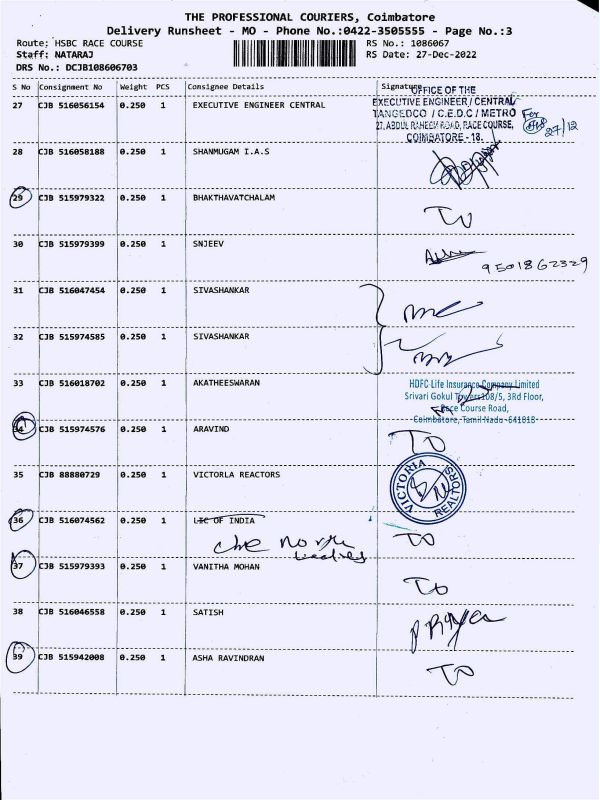 THE PROFESSIONAL COURIERS, Coimbatore
Delivery Runsheet - MO - Phone No.:0422-3505555 - Page No.:3
Route: HSBC RACE COURSE RS No.: 1086067
Staff: NATARAJ RS Date: 27-Dec-2022
DRS No.: DCJB108606703
S No Consignment No Weight PCS Consignee Details Signature
27 CJB 516056154 0.250 1 EXECUTIVE ENGINEER CENTRAL
OFFICE OF THE
EXECUTIVE ENGINEER / CENTRAL
TANGEDCO / C.E.D.C / METRO
27, ABDUL RAHEEM ROAD, RACE COURSE,
COIMBATORE - 18.
For
27/12
28 CJB 516058188 0.250 1 SHANMUGAM I.A.S
29 CJB 515979322 0.250 1 BHAKTHAVATCHALAM
TO
30 CJB 515979399 0.250 1 SNJEEV
9501862329
31 CJB 516047454 0.250 1 SIVASHANKAR
32 CJB 515974585 0.250 1 SIVASHANKAR
33 CJB 516018702 0.250 1 AKATHEESWARAN
HDFC Life Insurance Company Limited
Srivari Gokul Towers108/5, 3Rd Floor,
Race Course Road,
Coimbatore, Tamil Nadu -641018
34 CJB 515974576 0.250 1 ARAVIND TO
35 CJB 88880729 0.250 1 VICTORLA REACTORS
VICTORIA REALTORS
36 CJB 516074562 0.250 1 LIC OF INDIA TO
37 CJB 515979393 0.250 1 VANITHA MOHAN
TO
38 CJB 516046558 0.250 1 SATISH
PRIYA
39 CJB 515942008 0.250 1 ASHA RAVINDRAN
TO